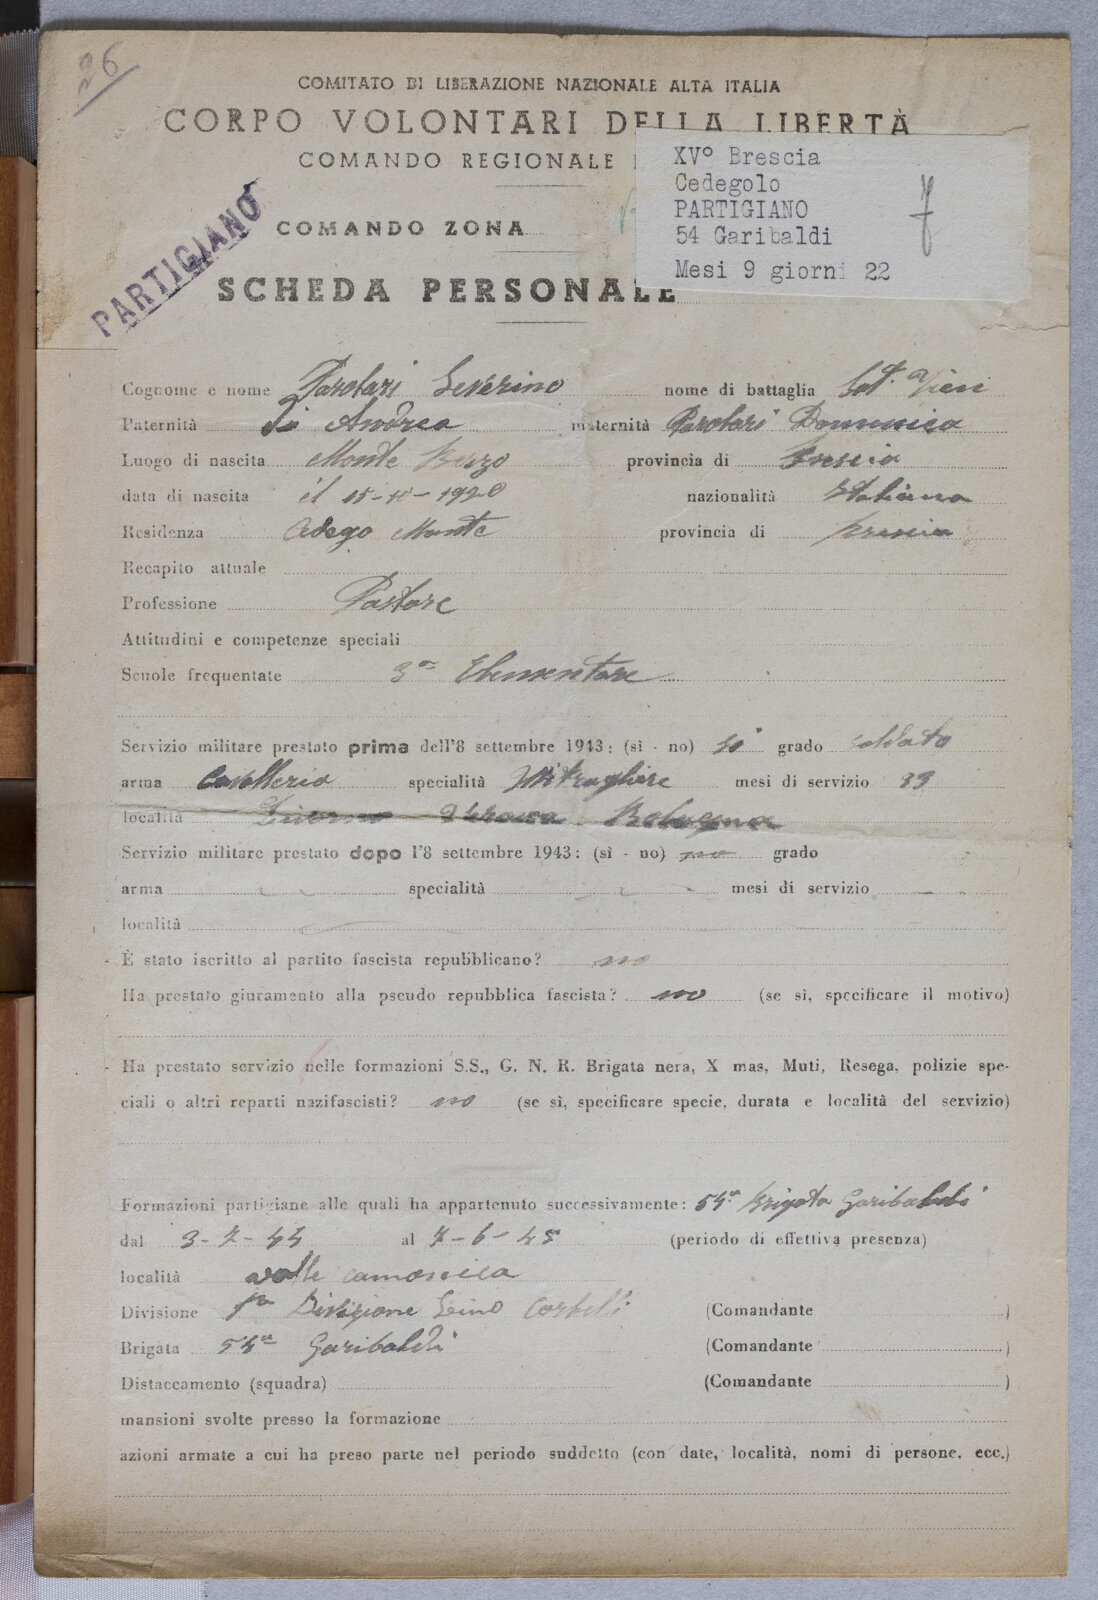 26
COMITATO DI LIBERAZIONE NAZIONALE ALTA ITALIA
CORPO VOLONTARI DELLA LIBERTÀ
COMANDO REGIONALE
XVº Brescia
Cedegolo
PARTIGIANO
54 Garibaldi
Mesi 9 giorni 22
PARTIGIANO
COMANDO ZONA
SCHEDA PERSONALE
Cognome e nome Parolari Severino nome di battaglia
Paternità di Andrea maternità Parolari Domenica
Luogo di nascita Monte Berzo provincia di Brescia
data di nascita il 15-10-1920 nazionalità Italiana
Residenza Cedego Monte provincia di Brescia
Recapito attuale
Professione Pastore
Attitudini e competenze speciali
Scuole frequentate 3ª Elementare
Servizio militare prestato prima dell'8 settembre 1943: (sì - no) si grado soldato
arma Cavalleria specialità Mitragliere mesi di servizio 33
località Bologna
Servizio militare prestato dopo l'8 settembre 1943: (sì - no) no grado
arma specialità mesi di servizio –
località
È stato iscritto al partito fascista repubblicano? no
Ha prestato giuramento alla pseudo repubblica fascista? no (se sì, specificare il motivo)
Ha prestato servizio nelle formazioni S.S., G. N. R. Brigata nera, X mas, Muti, Resega, polizie spe-
ciali o altri reparti nazifascisti? no (se sì, specificare specie, durata e località del servizio)
Formazioni partigiane alle quali ha appartenuto successivamente: 54ª Brigata Garibaldi
dal 3-7-44 al 7-6-45 (periodo di effettiva presenza)
località valle camonica
Divisione Divisione (Comandante )
Brigata 54ª Garibaldi (Comandante )
Distaccamento (squadra) (Comandante )
mansioni svolte presso la formazione
azioni armate a cui ha preso parte nel periodo suddetto (con date, località, nomi di persone, ecc.)